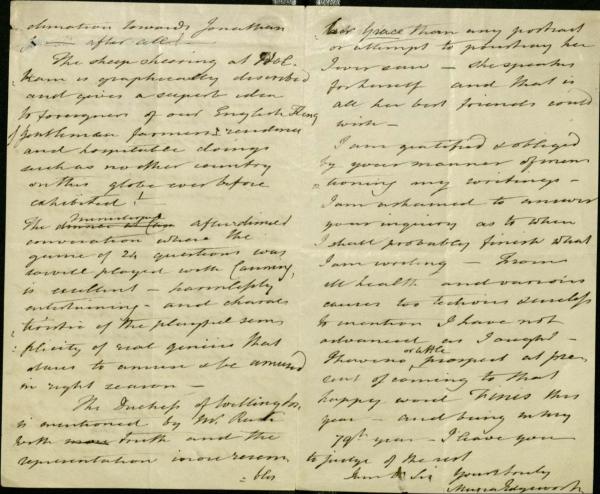 towards Jonathan
after all —
The sheep shearing at Hol-
kam is graphically described
and gives a superb idea
to foreigners of our English
gentleman farmers residence
and hospitable doings
such as no other country
on this globe ever before
exhibited!
The ministerial after dinner
conversation where the
game of 24 questions was
so well played with Canning
is excellent — harmlessly
entertaining — and charac
teristic of the playful sim
plicity of real genius that
dares to amuse & be amused
in right season —
The Duchess of Wellington
is mentioned by Mr. Rush
with more truth and the
representation is more resem
= bles
her Grace than any portrait
or attempt to pourtray her
I ever saw — she speaks
for herself and that is
all her best friends could
wish —
I am gratified & obliged
by your manner of men
tioning my writings —
I am ashamed to answer
your inquiry as to when
I shall probably finish what
I am writing — From
ill health and various
causes too tedious & useless
to mention I have not
advanced as I ought —
I have no or little prospect at pre
sent of coming to that
happy word Finis this
year — and being in my
79th year — I leave you
to judge of the rest
I am Dr Sir Yours truly
Maria Edgeworth